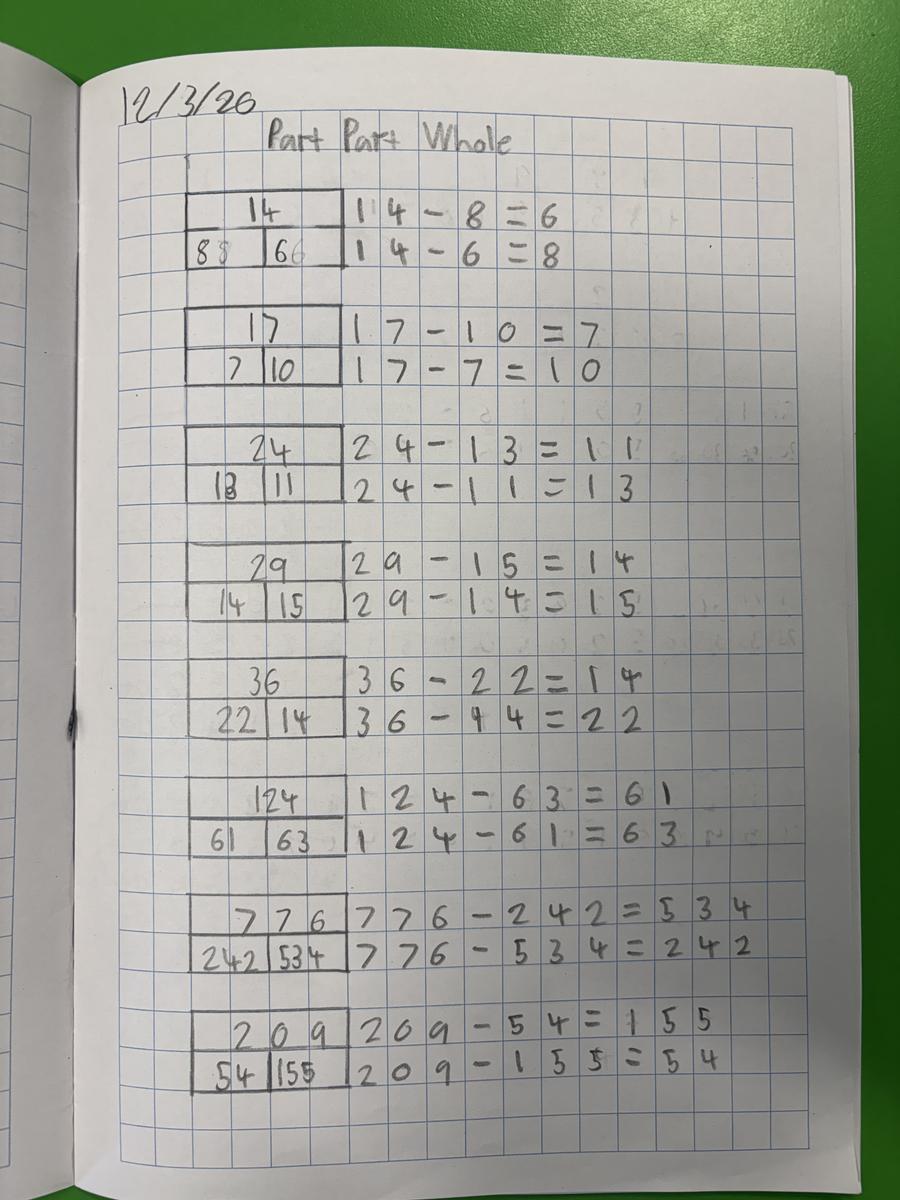 12/3/26
Part Part Whole
14 14-8=6
8 6 14-6=8
17 17-10=7
7 10 17-7=10
24 24-13=11
13 11 24-11=13
29 29-15=14
14 15 29-14=15
36 36-22=14
22 14 36-14=22
124 124-63=61
61 63 124-61=63
776 776-242=534
242 534 776-534=242
209 209-54=155
54 155 209-155=54